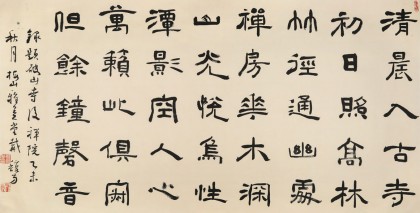 清晨入古寺
初日照高林
竹徑通幽處
禪房華木深
山光悅鳥性
潭影空人心
萬籟此俱寂
但餘鐘磬音
錄題破山寺後禪院乙未
秋月梅山